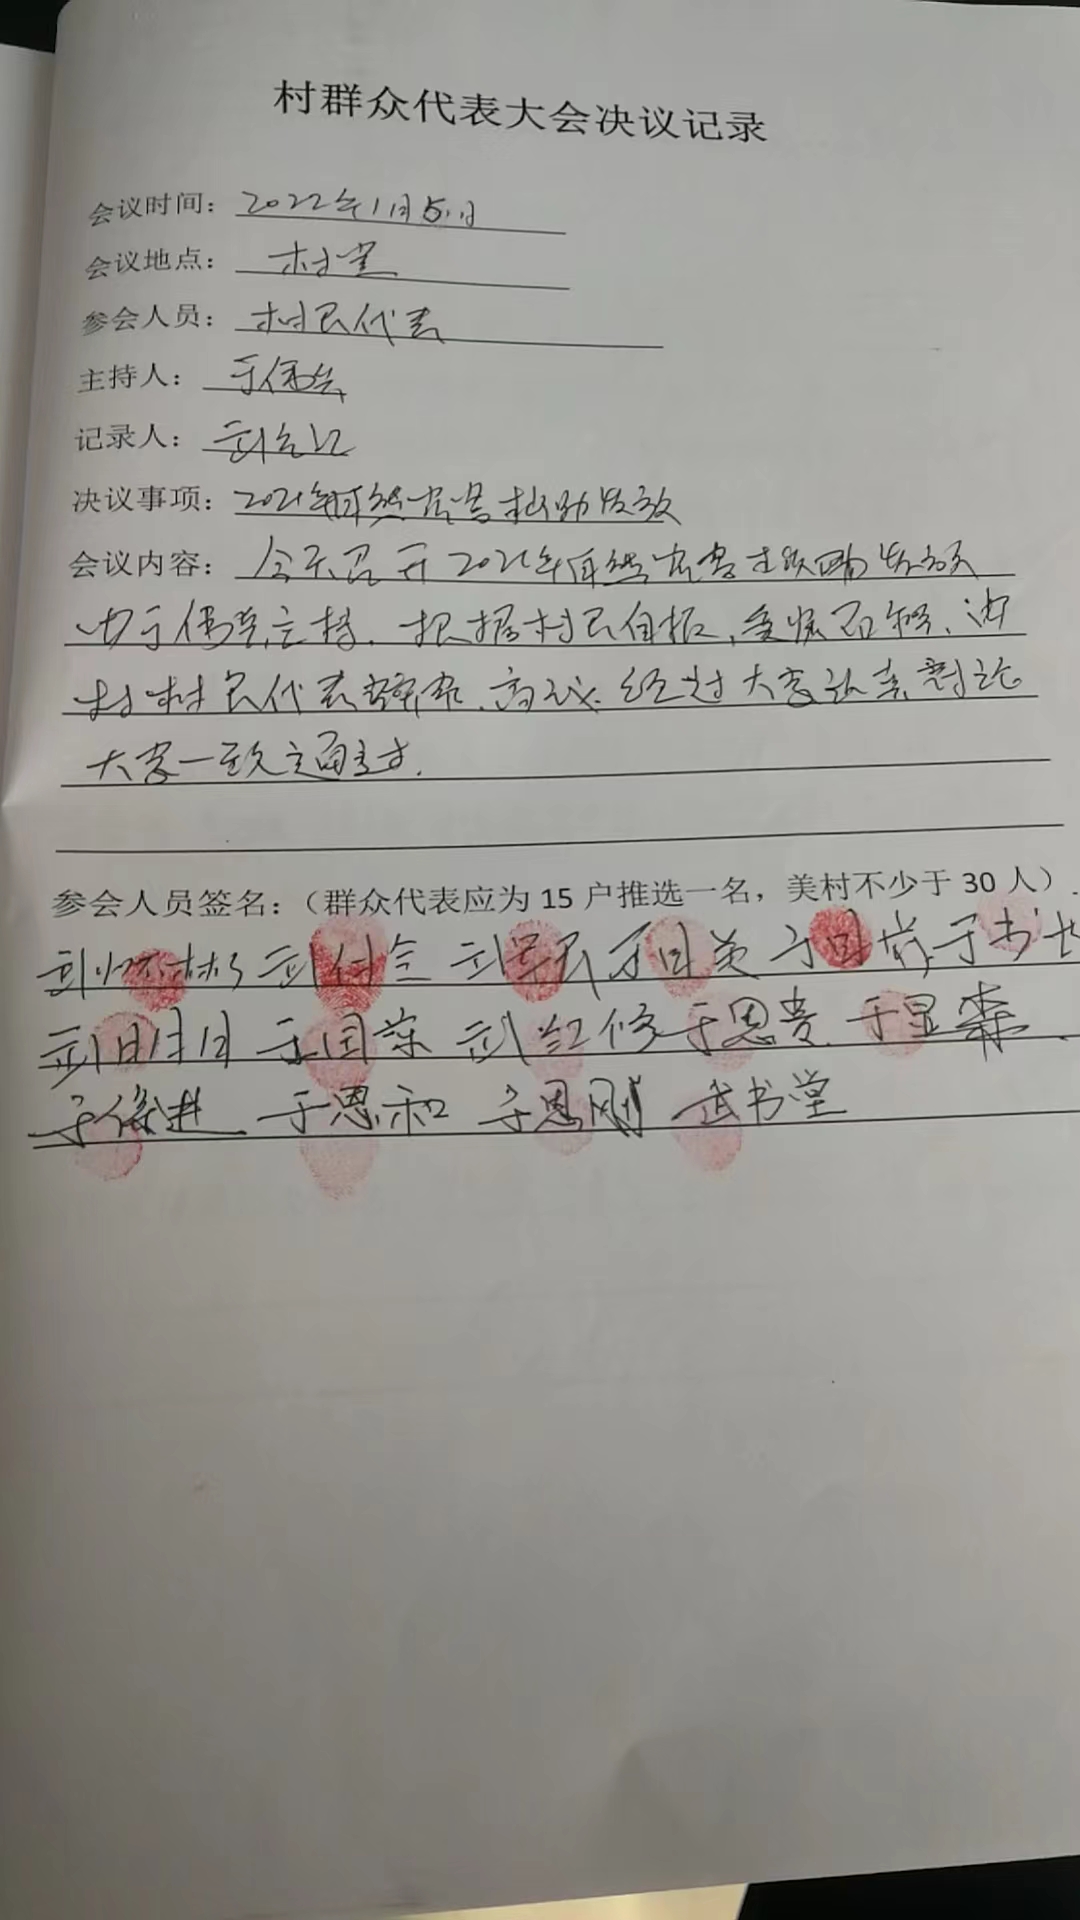 村群众代表大会决议记录
会议时间：2022年1月5日
会议地点：村室
参会人员：村民代表
主持人：于伟
记录人：
决议事项：2021年自然灾害救助发放
会议内容：今天召开2021年自然灾害救助发放
由于伟主持. 根据村民自报、受灾
村村民代表 经过大家认真讨论
大家一致通过.
参会人员签名：（群众代表应为 15 户推选一名，美村不少于 30 人）.
武付全 武军民 于国英 于国岩 于书
武明月 于国荣 武红修 于恩贵 于显森
于俊进 于恩和 于恩刚 武书堂